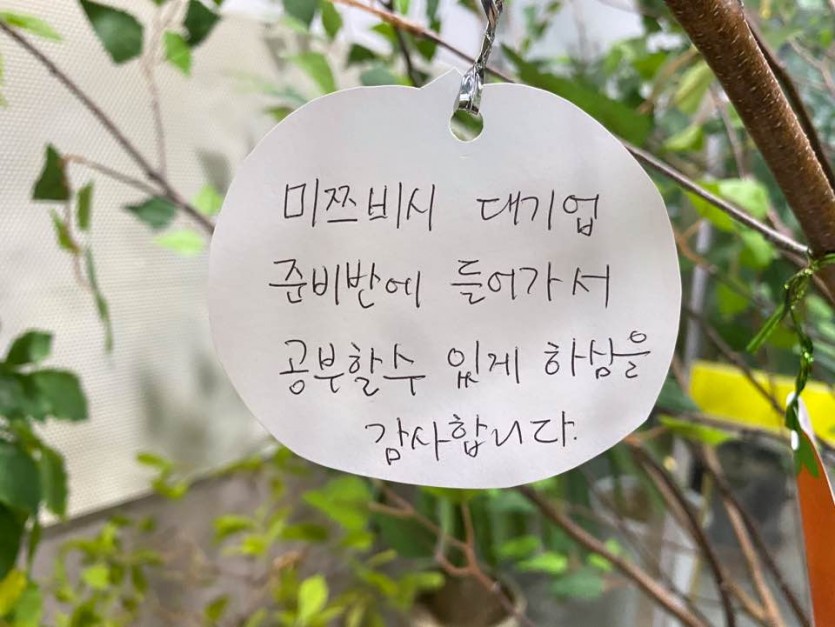 미쯔비시 대기업
준비반에 들어가서
공부할수 있게 하심을
감사합니다.